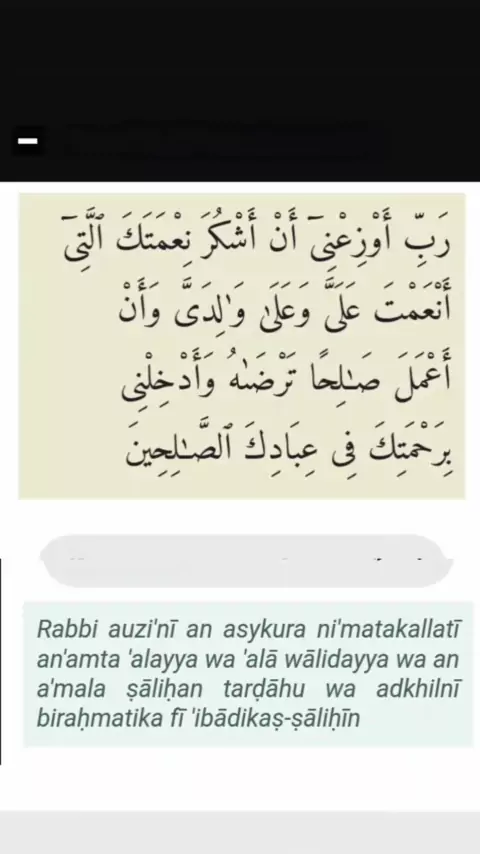 رَبِّ أَوْزِعْنِىٓ أَنْ أَشْكُرَ نِعْمَتَكَ ٱلَّتِىٓ
أَنْعَمْتَ عَلَىَّ وَعَلَىٰ وَٰلِدَىَّ وَأَنْ
أَعْمَلَ صَـٰلِحًا تَرْضَىٰهُ وَأَدْخِلْنِى
بِرَحْمَتِكَ فِى عِبَادِكَ ٱلصَّـٰلِحِينَ
Rabbi auzi'nī an asykura ni'matakallatī
an'amta 'alayya wa 'alā wālidayya wa an
a'mala ṣāliḥan tarḍāhu wa adkhilnī
biraḥmatika fī 'ibādikaṣ-ṣāliḥīn